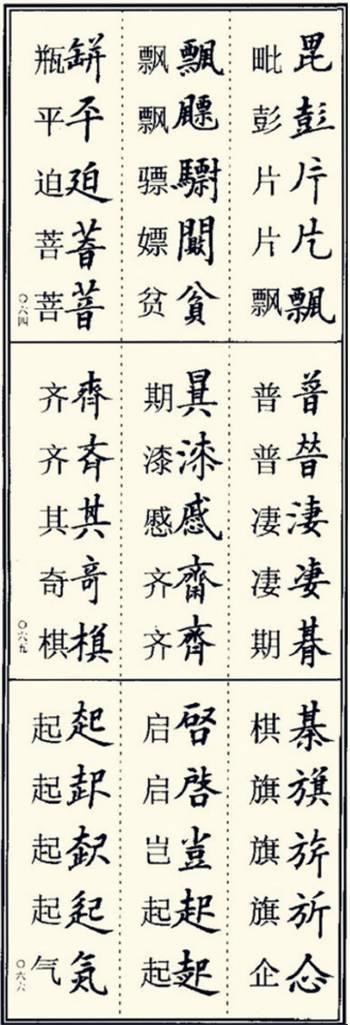 毗 毘
彭 彭
片 片
片 片
飘 飄
飘 飄
飘
骠
嫖
贫 貧
瓶 缾
平 平
迫 廹
菩
菩
〇六四
普 普
普
凄 淒
凄 凄
期 朞
期
漆 漆
慼 慼
齐 齋
齐 齊
齐 齊
齐 斉
其 其
奇 竒
棋 棋
〇六五
棋 棊
旗 旗
旗
旗 旂
企
启 啓
启 啓
岂 豈
起 起
起 起
起 起
起
起
起 起
气 気
〇六六